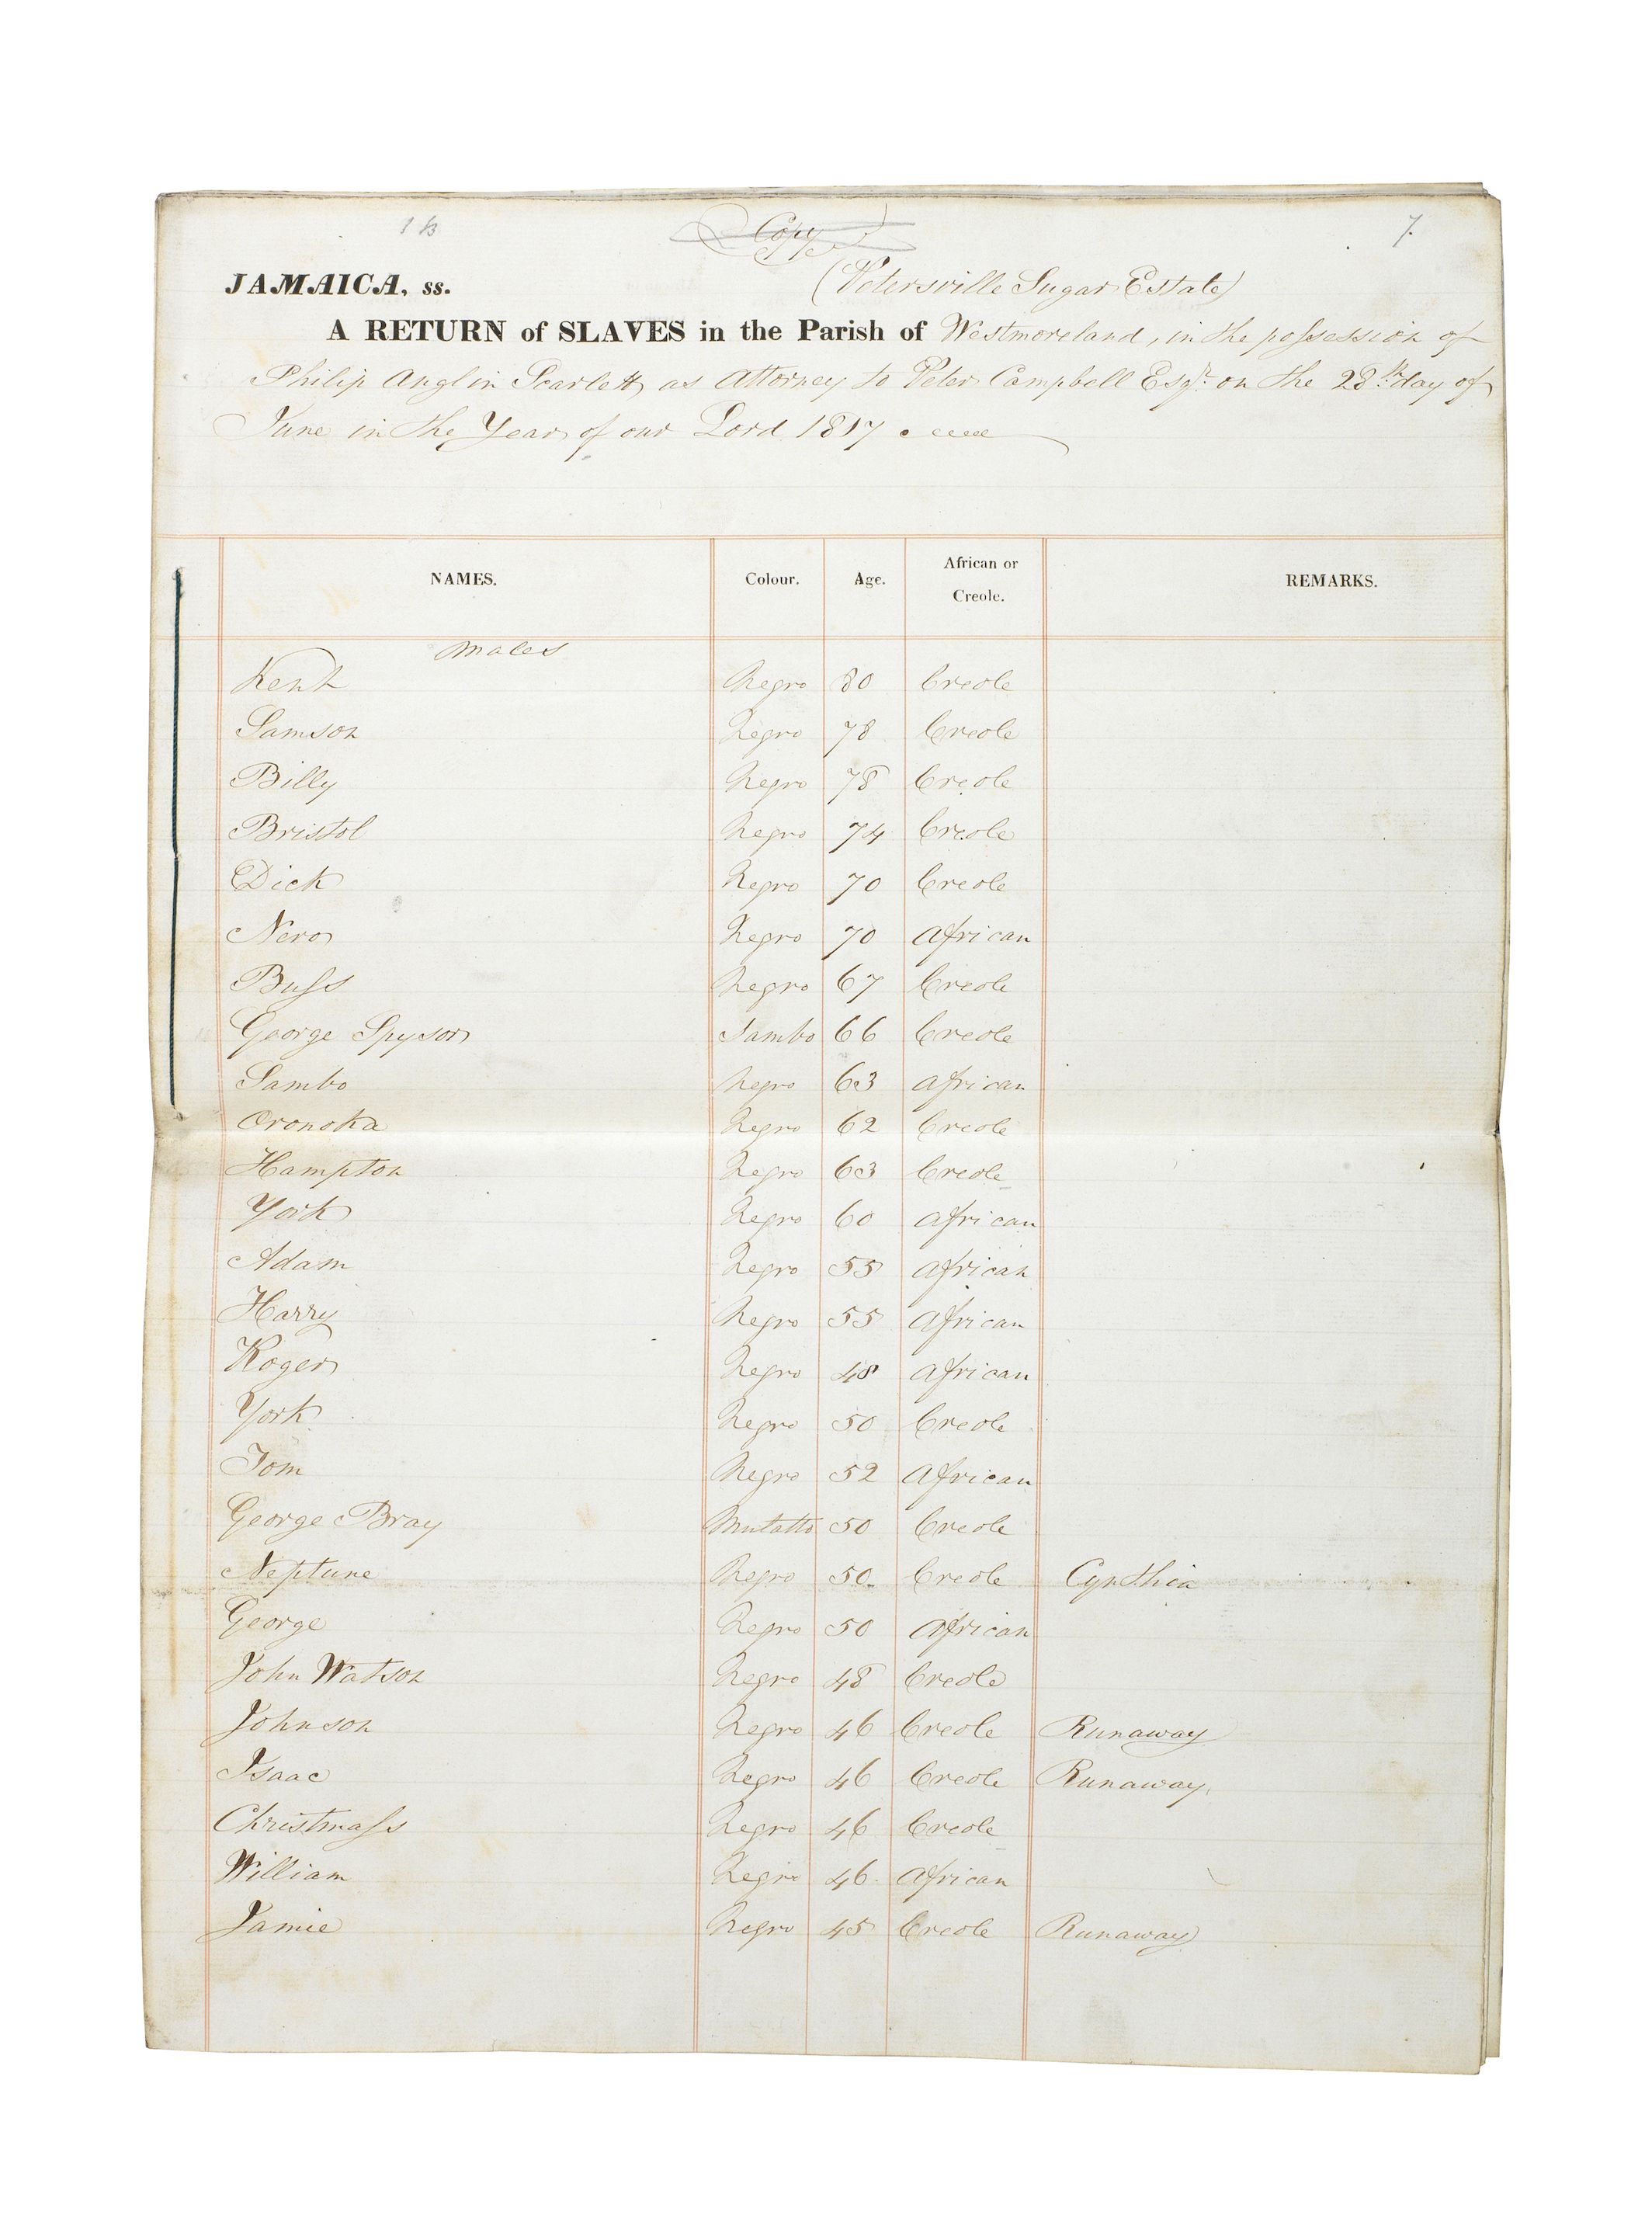 Copy
7.
JAMAICA, ss. (Petersville Sugar Estate)
A RETURN of SLAVES in the Parish of Westmoreland, in the possession of
Philip Anglin Scarlett as Attorney to Peter Campbell Esqr. on the 28th day of
June in the Year of our Lord 1817
NAMES. Colour. Age. African or Creole. REMARKS.
Males
Kent Negro 80 Creole
Samson Negro 78 Creole
Billy Negro 78 Creole
Bristol Negro 74 Creole
Dick Negro 70 Creole
Nero Negro 70 African
Buss Negro 67 Creole
George Spyson Sambo 66 Creole
Sambo Negro 63 African
Oronoka Negro 62 Creole
Hampton Negro 63 Creole
York Negro 60 African
Adam Negro 55 African
Harry Negro 55 African
Roger Negro 48 African
York Negro 50 Creole
Tom Negro 52 African
George Bray Mulatto 50 Creole
Neptune Negro 50 Creole Cynthia
George Negro 50 African
John Watson Negro 48 Creole
Johnson Negro 46 Creole Runaway
Isaac Negro 46 Creole Runaway
Christmass Negro 46 Creole
William Negro 46 African
Jamie Negro 45 Creole Runaway